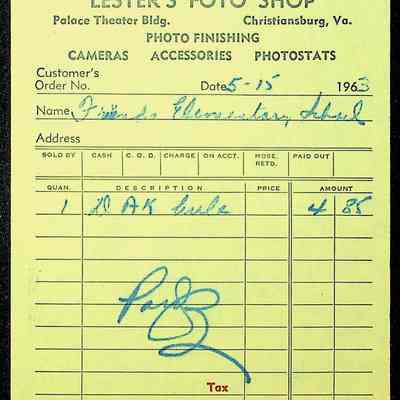 LESTER'S FOTO SHOP
Palace Theater Bldg. Christiansburg, Va.
PHOTO FINISHING
CAMERAS ACCESSORIES PHOTOSTATS
Customer's
Order No. Date 5-15 1963
Name Friends Elementary School
Address
SOLD BY CASH C. O. D. CHARGE ON ACCT. MDSE. RETD. PAID OUT
QUAN. DESCRIPTION PRICE AMOUNT
1 AK 4 85
Tax